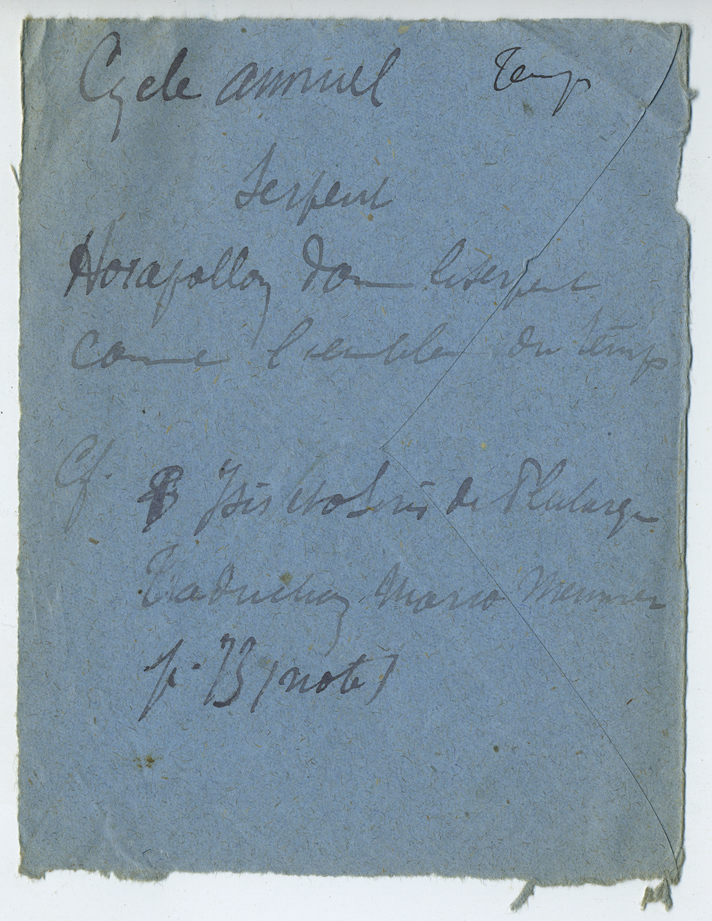 Cycle annuel Temps
Serpent
Horapollon donne le serpent
comme l'emblème du temps
Cf. Isis et Osiris de Plutarque
Traduction Mario Meunier
p. 73 (note)